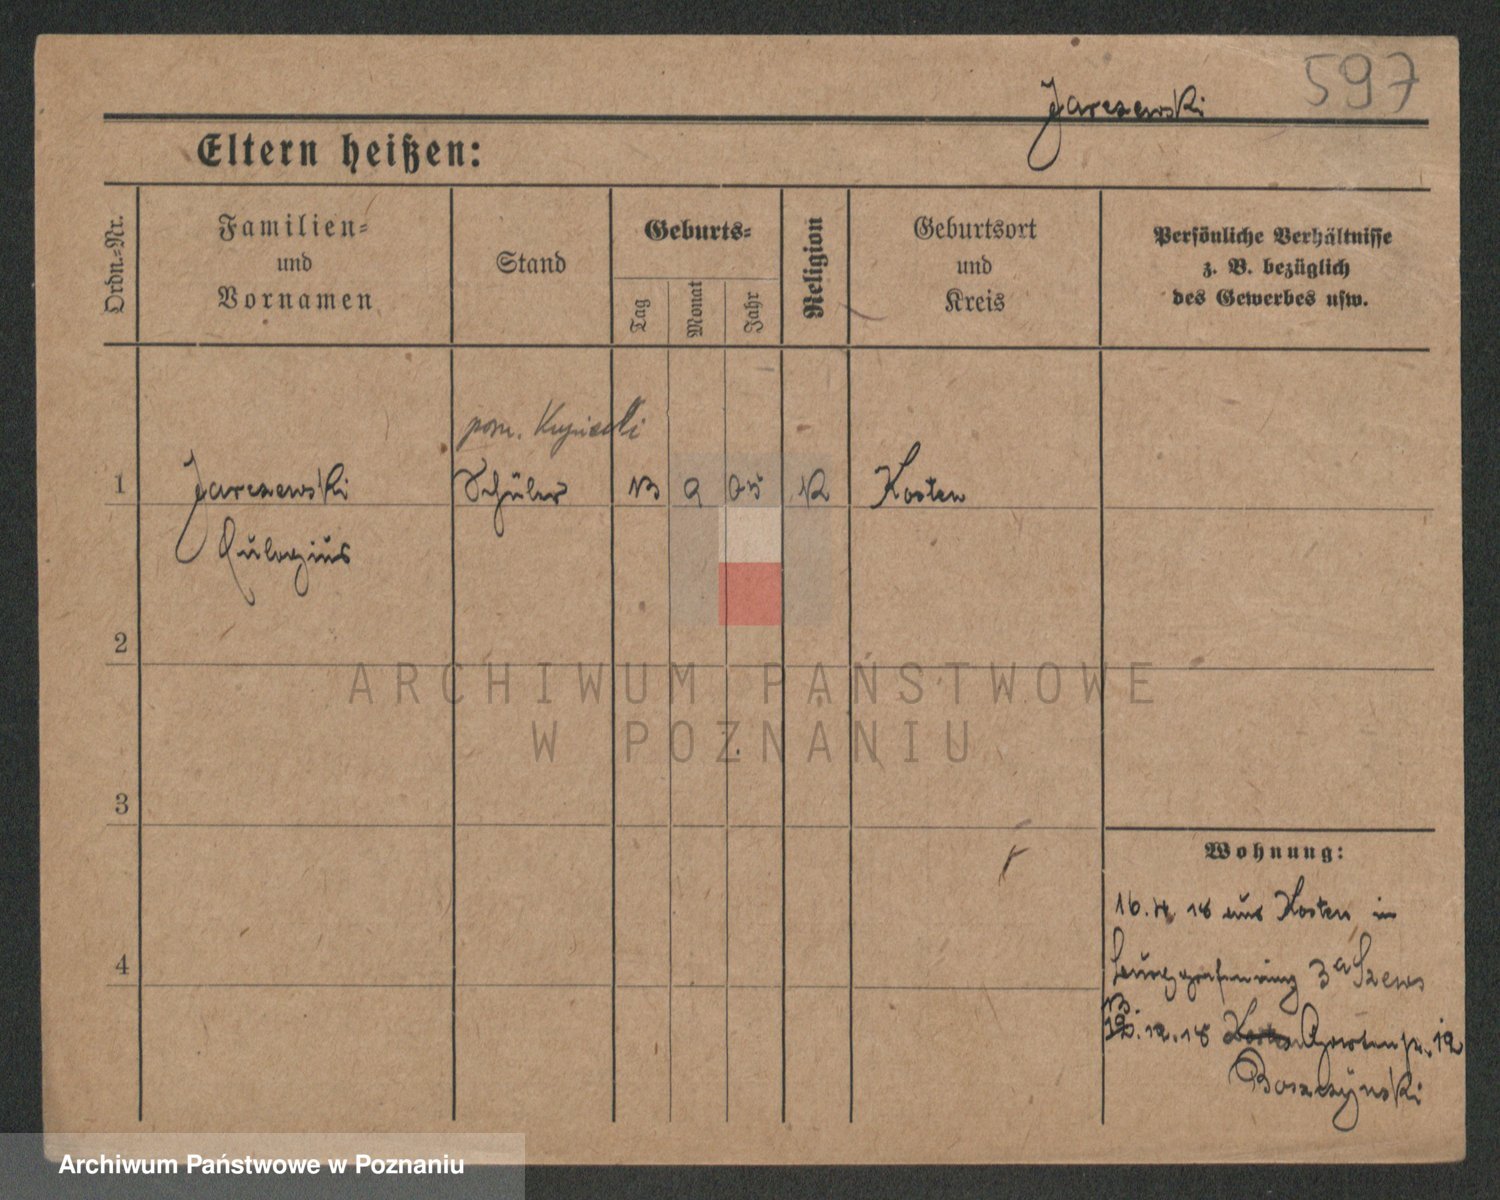 597
Jarczewski
Eltern heißen:
Ordn.=Nr.
Familien=
und
Vornamen
Stand
Geburts=
Tag
Monat
Jahr
Religion
Geburtsort
und
Kreis
Persönliche Verhältnisse
z. B. bezüglich
des Gewerbes usw.
pom.
1 Jarczewski Schüler 13 9 05 K Kosten
Eulogius
2
3
4
Wohnung:
16. 18 aus Kosten in
3a
12.18 Gartenstr. 12
Boszczyński
ARCHIWUM PAŃSTWOWE
W POZNANIU
Archiwum Państwowe w Poznaniu